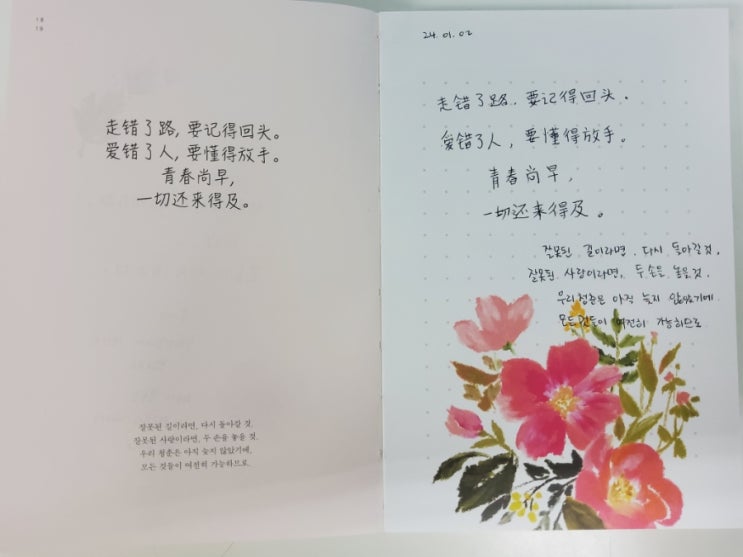 18
19
走错了路，要记得回头。
爱错了人，要懂得放手。
青春尚早，
一切还来得及。
잘못된 길이라면, 다시 돌아갈 것,
잘못된 사랑이라면, 두 손을 놓을 것.
우리 청춘은 아직 늦지 않았기에,
모든 것들이 여전히 가능하므로.
24. 01. 02
走错了路，要记得回头。
爱错了人，要懂得放手。
青春尚早，
一切还来得及。
잘못된 길이라면, 다시 돌아갈 것,
잘못된 사랑이라면, 두 손을 놓을 것,
우리 청춘은 아직 늦지 않았기에
모든 것들이 여전히 가능하므로